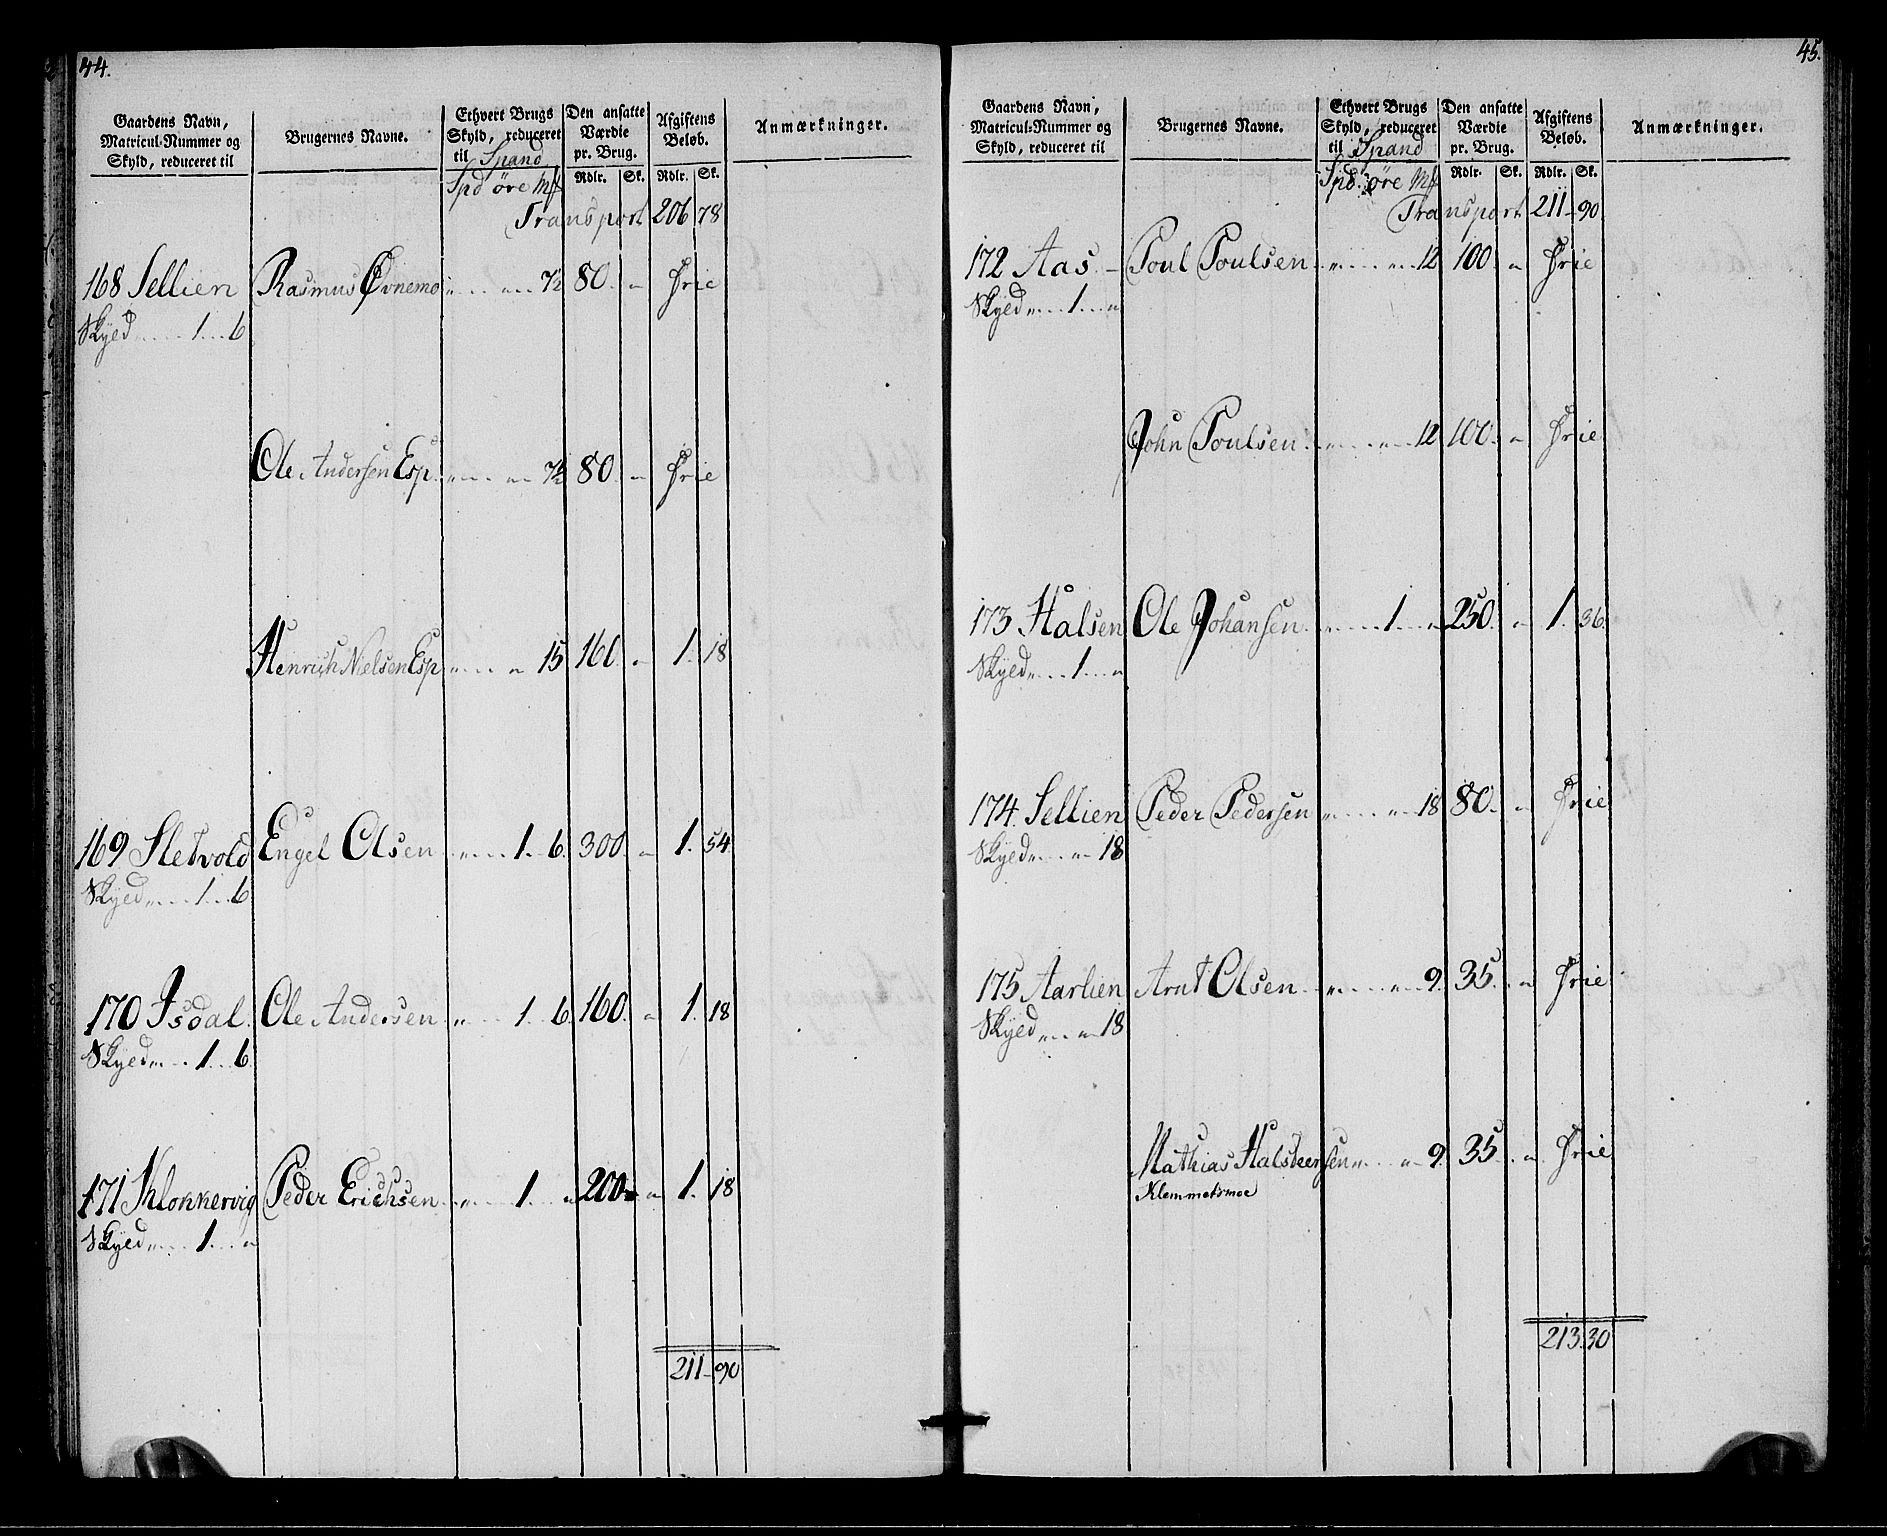 44.
Gaardens Navn, Matricul-Nummer og Skyld, reduceret til | Brugernes Navne. | Ethvert Brugs Skyld, reduceret til Spand | Den ansatte Værdie pr. Brug. | Afgiftens Beløb. | Anmærkninger.
Spd øre Mk | Rdlr. Sk. | Rdlr. Sk.
Transport 206 78
168 Sellien Rasmus Øvnemo „ „ 7½ 80. „ Frie
Skyed „ 1 6
Ole Andersen Esp. „ „ 7½ 80. „ Frie
Henrich Nielsen Esp „ „ 15 160. „ 1. 18
169 Sletvold Engel Olsen „ 1. 6. 300. „ 1. 54
Skyed „ 1 6
170 Isdal. Ole Andersen „ 1 6 160. „ 1. 18
Skyed „ 1 6.
171 Klokkervig Peder Erichsen „ 1. „ 200 „ 1. 18
Skyed „ 1. „
211 90
45.
Gaardens Navn, Matricul-Nummer og Skyld, reduceret til | Brugernes Navne. | Ethvert Brugs Skyld, reduceret til Spand | Den ansatte Værdie pr. Brug. | Afgiftens Beløb. | Anmærkninger.
Spd. øre Mk | Rdlr. Sk. | Rdlr. Sk.
Transport 211 90
172 Aas Poul Poulsen „ „ 12 100. „ Frie
Skyed „ 1 „
John Poulsen „ „ 12 100. „ Frie
173 Halsen Ole Johansen „ 1 „ 250. „ 1. 36.
Skyed „ 1 „
174. Sellien Peder Pedersen „ „ 18 80. „ Frie
Skyed „ „ 18
175 Aarlien Arnt Olsen „ „ 9. 35. „ Frie
Skyed „ „ 18
Mathias Halsteensen „ „ 9. 35. „ Frie
Klemmetsmoe
213. 30